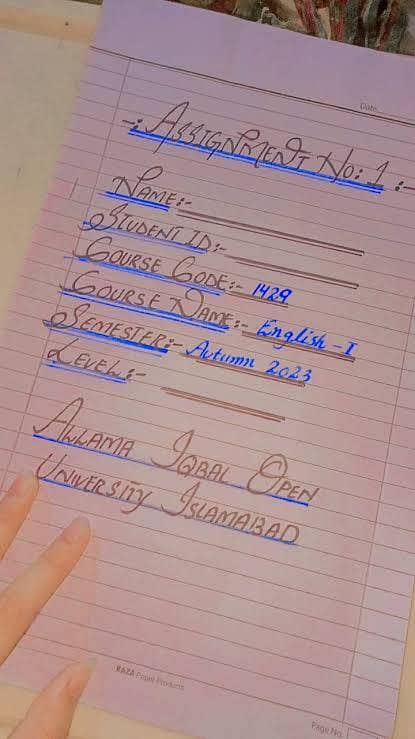 Date
-: ASSIGNMENT NO: 1 :-
NAME:-
STUDENT ID:-
COURSE CODE:- 1429
COURSE NAME:- English - I
SEMESTER:- Autumn 2023
LEVEL:-
ALLAMA IQBAL OPEN
UNIVERSITY ISLAMABAD
RAZA Paper Products
Page No.